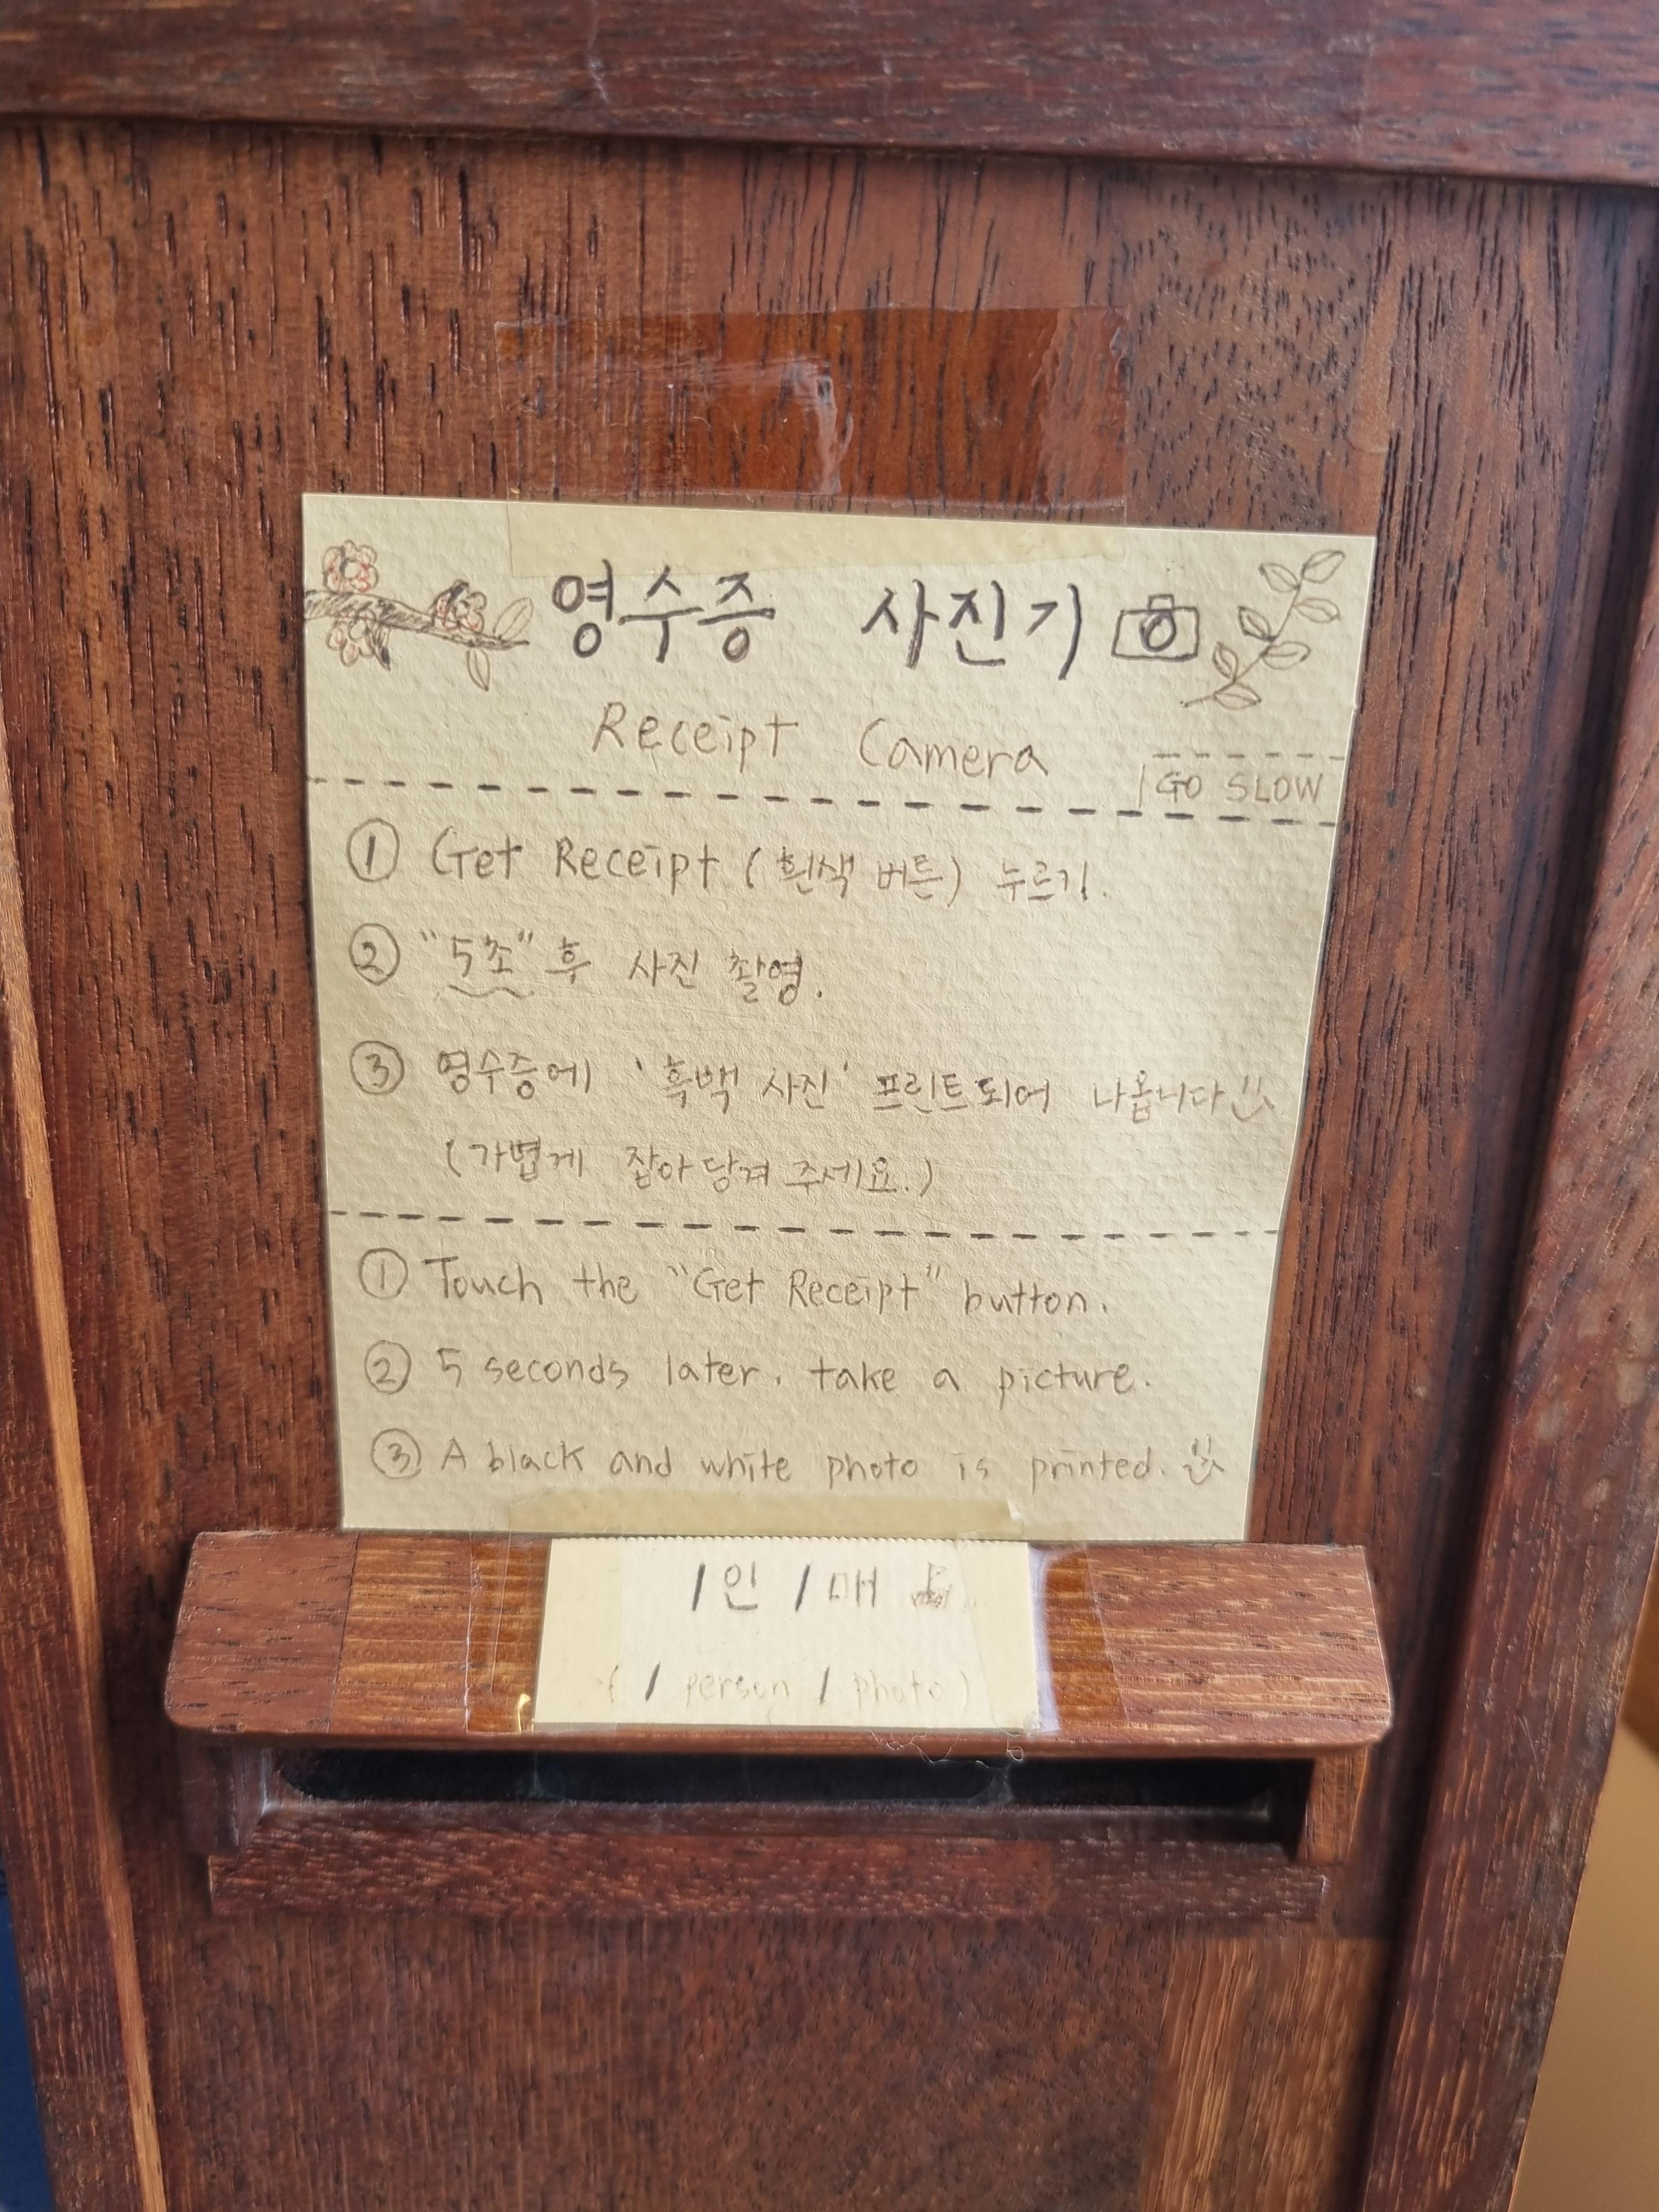 영수증 사진기
Receipt Camera
GO SLOW
① Get Receipt (흰색 버튼) 누르기.
② "5초" 후 사진 촬영.
③ 영수증에 '흑백 사진' 프린트되어 나옵니다
(가볍게 잡아당겨 주세요.)
① Touch the "Get Receipt" button.
② 5 seconds later, take a picture.
③ A black and white photo is printed.
1인 1매
(1 person 1 photo)